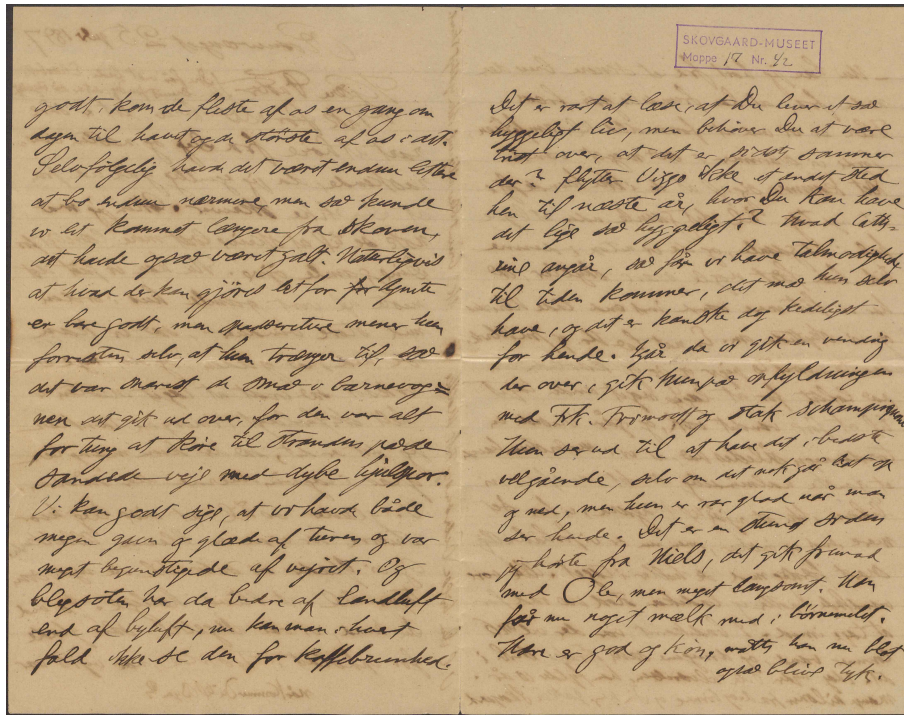 godt, kom de fleste af os en gang om
dagen til havet og de største af os i det.
Selvfølgelig havde det været endnu lettere
at bo endnu nærmere men så kunde
vi let kommet længere fra Skoven,
det havde også været galt. Naturligvis
at hvad der kan gjøres let for for Agnete
er bare godt, men spadsereture mener hun
forresten selv, at hun trænger til, så
det var snarest de små i barnevog=
nen det gik ud over, for den var alt
for tung at køre til Strandens på de
sandede veje med dybe hjulspor.
Vi kan godt sige, at vi havde både
megen gavn og glæde af turen og var
meget begunstigede af vejret. Og
blegsoten har da bedre af Landluft
end af byluft, nu kan man i hvert
fald ikke se den for Kaffebrunhed.
SKOVGAARD-MUSEET
Mappe 17 Nr. 42
Det er rart at læse, at Du lever et så
hyggeligt liv, men behøver Du at være
trist over, at det er sidste sommer
der? flytter Viggo ikke et andet sted
hen til næste år, hvor Du kan have
det lige så hyggeligt? Hvad Cath-
rine angår, så får vi have tålmodighed
til tiden kommer, det må hun selv
have, og det er kanske dog kedeligst
for hende. Igår da vi gik en vending
der over, gik hun på opfyldningen
med Frk. og stak
Hun ser ud til at have det i bedste
velgående, selv om det nok går lidt op
og ned, men hun er rar glad når man
ser hende. Det er en stund siden
jeg hørte fra Niels, det gik fremad
med Ole, men meget langsomt. Han
får nu noget mælk med i börnemelet.
Have er god og kön, måtte han nu blot
også blive tyk.